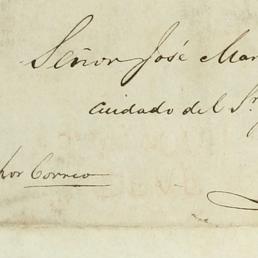 Señor José Mar
Cuidado del Sr.
Por Correo